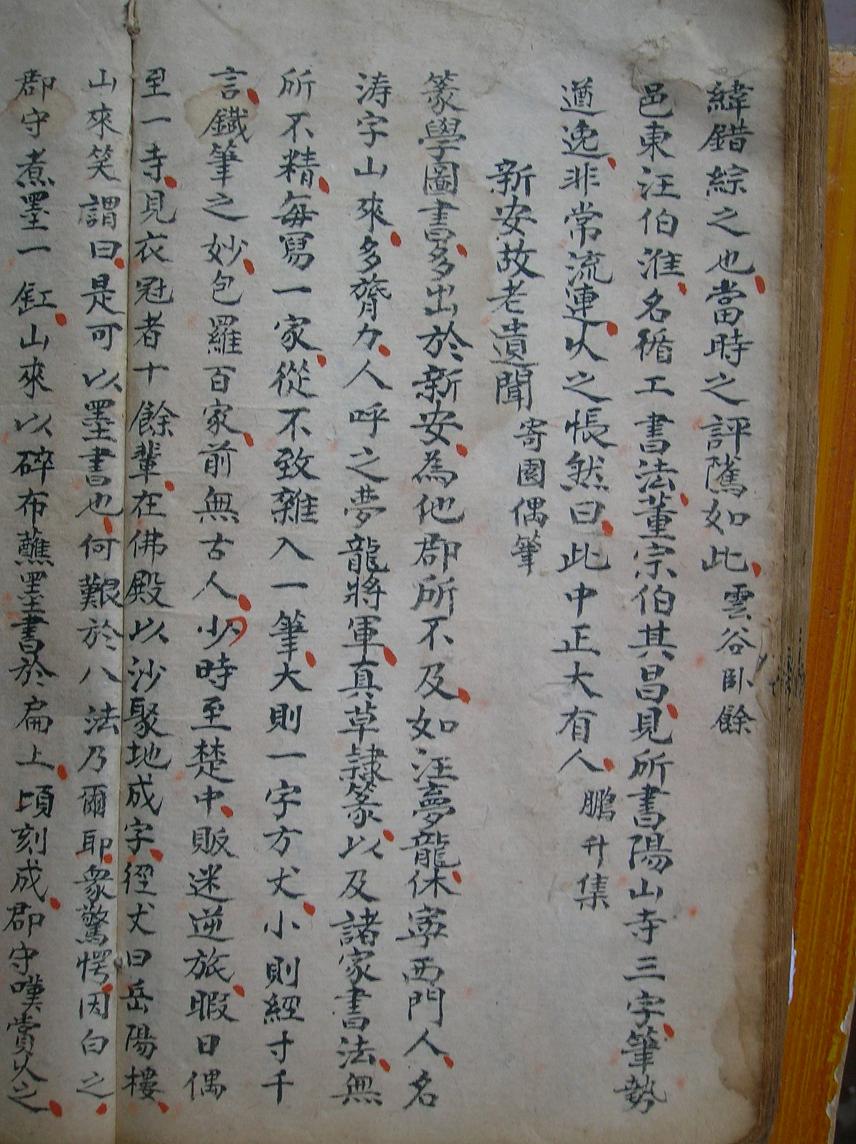 緯錯綜之也當時之評隲如此雲谷臥餘
邑東汪伯淮名循工書法董宗伯其昌見所書陽山寺三字筆勢
遒逸非常流連久之悵然曰此中正大有人鵬升集
新安故老遺聞寄園偶筆
篆學圖書多出於新安為他郡所不及如汪夢龍休寧西門人名
濤字山來多膂力人呼之夢龍將軍真草隸篆以及諸家書法無
所不精每寫一家從不致雜入一筆大則一字方丈小則經寸千
言鐵筆之妙包羅百家前無古人少時至楚中販迷逆旅暇日偶
至一寺見衣冠者十餘輩在佛殿以沙聚地成字徑丈曰岳陽樓
山來笑謂曰是可以墨書也何艱於八法乃爾耶眾驚愕因白之
郡守煮墨一缸山來以碎布蘸墨書於扁上頃刻成郡守嘆賞久之